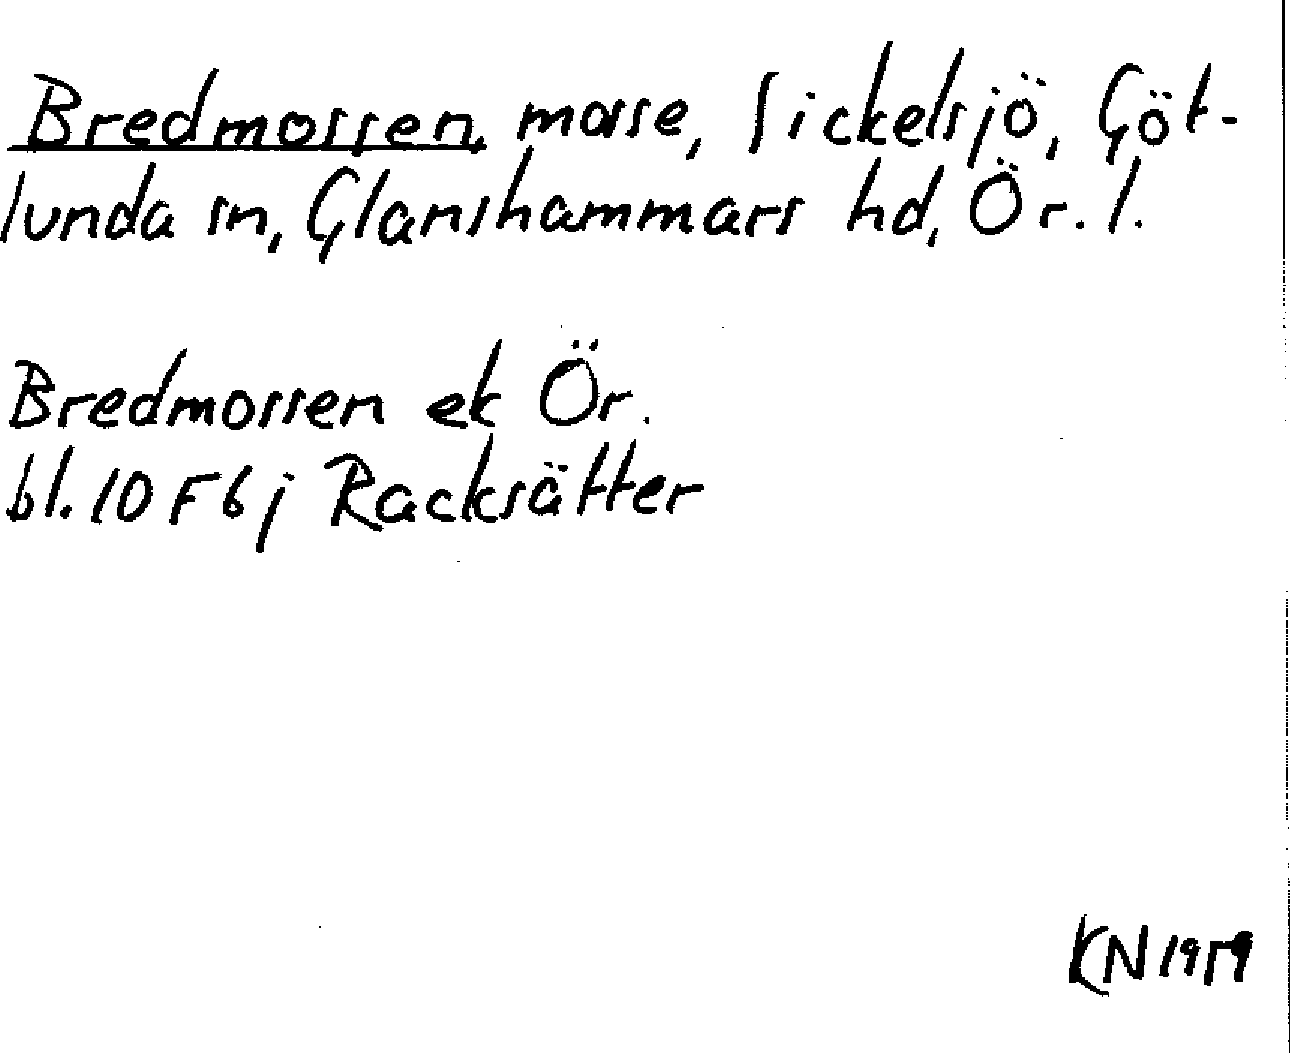 Bredmossen, mosse, Sickelsjö, Göt-
lunda sn, Glanshammars hd, Ör. l.
Bredmossen ek Ör.
bl. 10F6j Racksätter
KN 1959